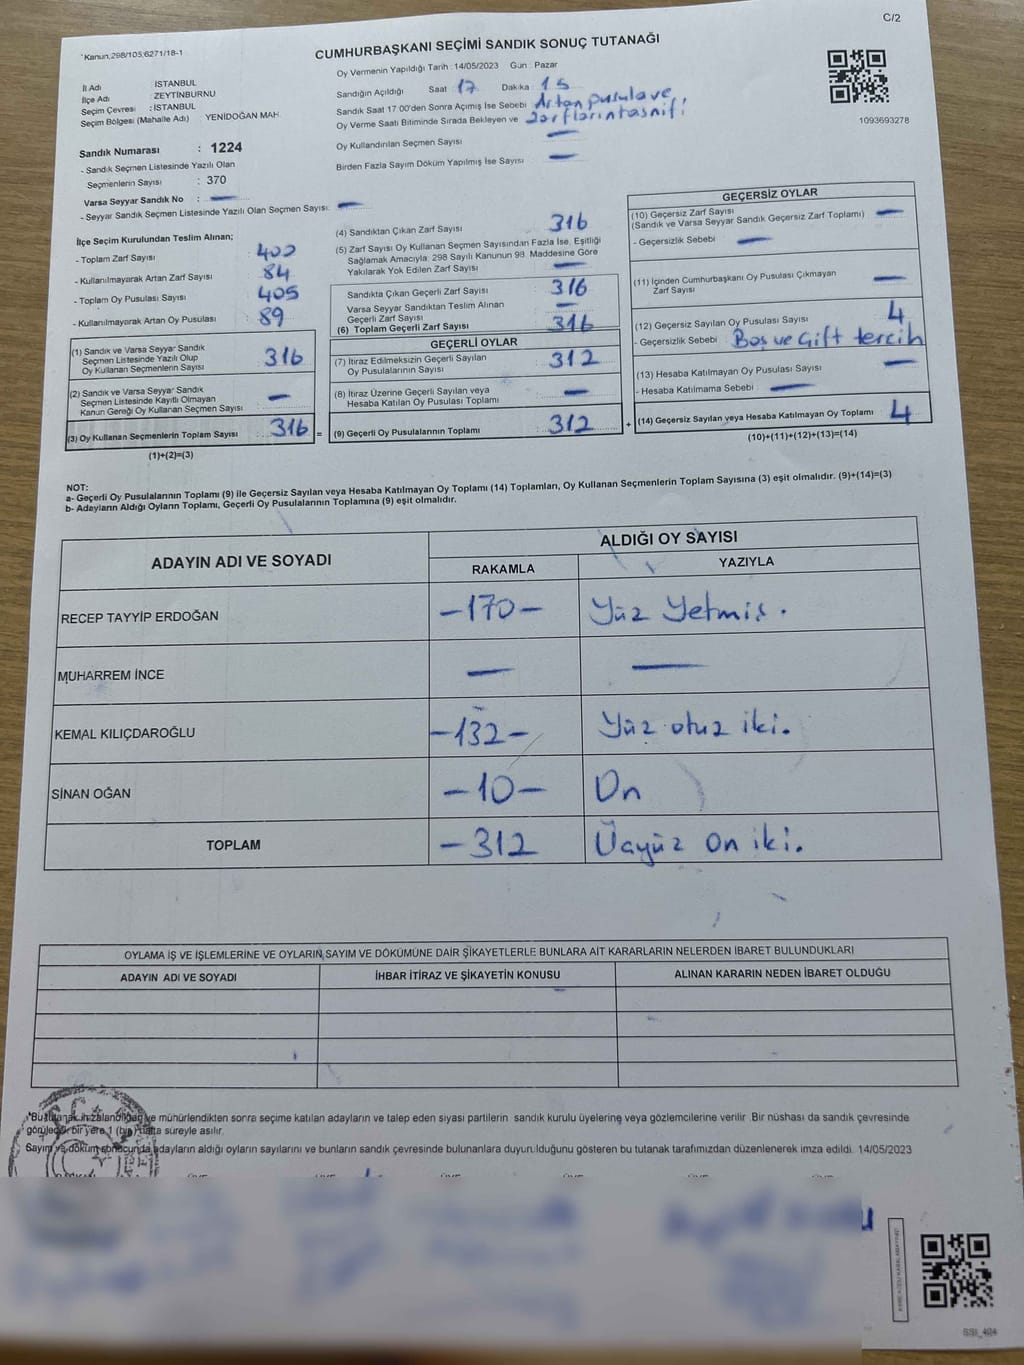 C/2
*Kanun:298/105;6271/18-1
CUMHURBAŞKANI SEÇİMİ SANDIK SONUÇ TUTANAĞI
Oy Vermenin Yapıldığı Tarih : 14/05/2023 Gün : Pazar
İl Adı : İSTANBUL
İlçe Adı : ZEYTİNBURNU
Seçim Çevresi : İSTANBUL
Seçim Bölgesi (Mahalle Adı) YENİDOĞAN MAH.
Sandık Numarası : 1224
- Sandık Seçmen Listesinde Yazılı Olan
Seçmenlerin Sayısı : 370
Varsa Seyyar Sandık No : —
- Seyyar Sandık Seçmen Listesinde Yazılı Olan Seçmen Sayısı: —
Sandığın Açıldığı Saat 17 Dakika 15
Sandık Saat 17.00'den Sonra Açılmış İse Sebebi Artan pusula ve
Oy Verme Saati Bitiminde Sırada Bekleyen ve zarfların tasnifi
Oy Kullandırılan Seçmen Sayısı —
Birden Fazla Sayım Döküm Yapılmış İse Sayısı —
1093693278
İlçe Seçim Kurulundan Teslim Alınan;
- Toplam Zarf Sayısı 400
- Kullanılmayarak Artan Zarf Sayısı 84
- Toplam Oy Pusulası Sayısı 405
- Kullanılmayarak Artan Oy Pusulası 89
(1) Sandık ve Varsa Seyyar Sandık
Seçmen Listesinde Yazılı Olup
Oy Kullanan Seçmenlerin Sayısı 316
(2) Sandık ve Varsa Seyyar Sandık
Seçmen Listesinde Kayıtlı Olmayan
Kanun Gereği Oy Kullanan Seçmen Sayısı —
(3) Oy Kullanan Seçmenlerin Toplam Sayısı : 316 =
(1)+(2)=(3)
(4) Sandıktan Çıkan Zarf Sayısı 316
(5) Zarf Sayısı Oy Kullanan Seçmen Sayısından Fazla İse, Eşitliği
Sağlamak Amacıyla; 298 Sayılı Kanunun 98. Maddesine Göre
Yakılarak Yok Edilen Zarf Sayısı —
Sandıkta Çıkan Geçerli Zarf Sayısı 316
Varsa Seyyar Sandıktan Teslim Alınan
Geçerli Zarf Sayısı —
(6) Toplam Geçerli Zarf Sayısı 316
GEÇERLİ OYLAR
(7) İtiraz Edilmeksizin Geçerli Sayılan
Oy Pusulasının Sayısı 312
(8) İtiraz Üzerine Geçerli Sayılan veya
Hesaba Katılan Oy Pusulası Toplamı —
(9) Geçerli Oy Pusulalarının Toplamı : 312 +
GEÇERSİZ OYLAR
(10) Geçersiz Zarf Sayısı
(Sandık ve Varsa Seyyar Sandık Geçersiz Zarf Toplamı) —
- Geçersizlik Sebebi —
(11) İçinden Cumhurbaşkanı Oy Pusulası Çıkmayan
Zarf Sayısı —
(12) Geçersiz Sayılan Oy Pusulası Sayısı 4
- Geçersizlik Sebebi : Boş ve Çift tercih
(13) Hesaba Katılmayan Oy Pusulası Sayısı —
- Hesaba Katılmama Sebebi : —
(14) Geçersiz Sayılan veya Hesaba Katılmayan Oy Toplamı 4
(10)+(11)+(12)+(13)=(14)
NOT:
a- Geçerli Oy Pusulalarının Toplamı (9) ile Geçersiz Sayılan veya Hesaba Katılmayan Oy Toplamı (14) Toplamları, Oy Kullanan Seçmenlerin Toplam Sayısına (3) eşit olmalıdır. (9)+(14)=(3)
b- Adayların Aldığı Oyların Toplamı, Geçerli Oy Pusulalarının Toplamına (9) eşit olmalıdır.
ADAYIN ADI VE SOYADI ALDIĞI OY SAYISI
RAKAMLA YAZIYLA
RECEP TAYYİP ERDOĞAN -170- Yüz Yetmiş.
MUHARREM İNCE — —
KEMAL KILIÇDAROĞLU -132- Yüz otuz iki.
SİNAN OĞAN -10- On
TOPLAM -312 Üçyüz on iki.
OYLAMA İŞ VE İŞLEMLERİNE VE OYLARIN SAYIM VE DÖKÜMÜNE DAİR ŞİKAYETLERLE BUNLARA AİT KARARLARIN NELERDEN İBARET BULUNDUKLARI
ADAYIN ADI VE SOYADI İHBAR İTİRAZ VE ŞİKAYETİN KONUSU ALINAN KARARIN NEDEN İBARET OLDUĞU
ve mühürlendikten sonra seçime katılan adayların ve talep eden siyasi partilerin sandık kurulu üyelerine veya gözlemcilerine verilir. Bir nüshası da sandık çevresinde
bir yere 1 (bir) hafta süreyle asılır.
Sayım ve döküm sonucunda adayların aldığı oyların sayılarını ve bunların sandık çevresinde bulunanlara duyurulduğunu gösteren bu tutanak tarafımızdan düzenlenerek imza edildi. 14/05/2023